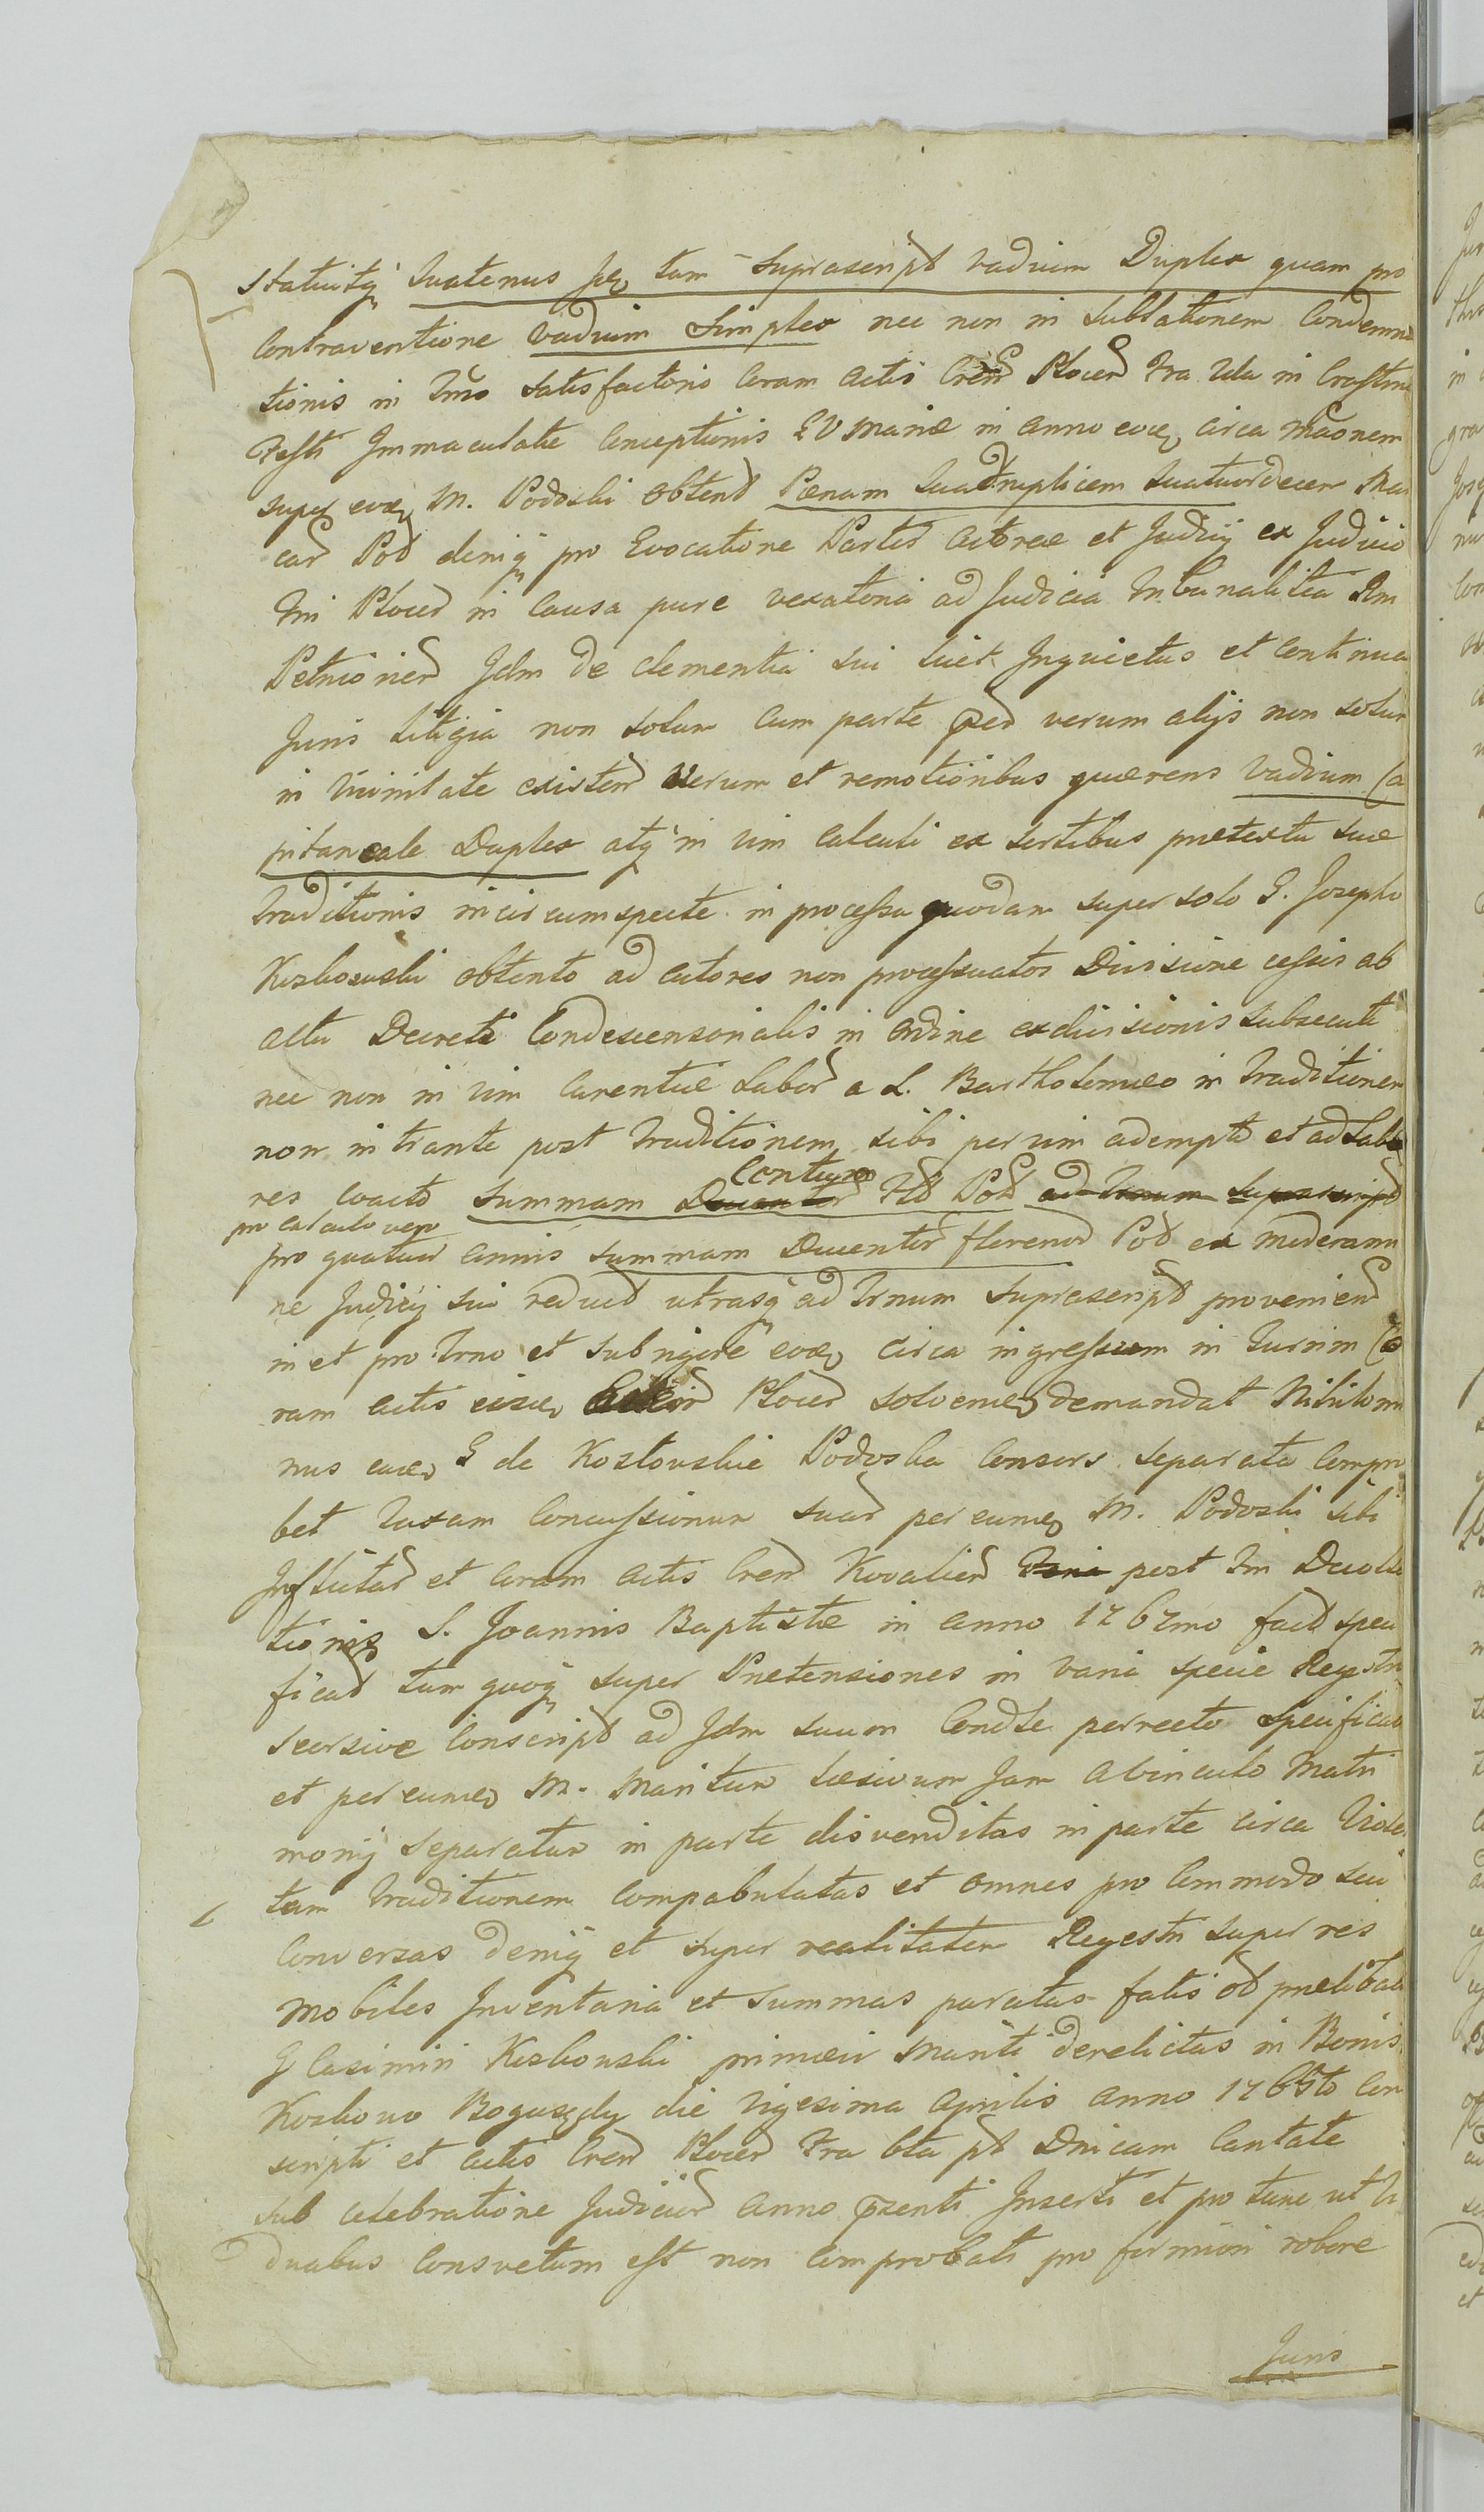 Statuitq quatenus pr tam suprascript vadium Duplex quam pro
Contraventione vadium Simplex nec non in sublationem Condemna
tionis in Tmo satisfactoris Coram Actis Cren Plocen Fra 2da in Crastino
Festi Immaculatæ Conceptionis BV Mariæ in anno circa Maonem
super M. Podoski obtent Pænam Quadruplicem Quatuordecem Mar
car Pol deniq pro Evocatione Partis Actoreæ et Judicij ex Judicio
Tri Plocen in Causa pure vexatoria ad Judicia Tribunalitia Rni
Petricionen Idm de clementia sui Inquietus et Continua
Juris litigia non solum cum parte verum alijs non solum
in Vicinitate existen verum et remotioribus quærens Vadium Ca
pitaneale Duplex atq in vim Calculi ex sortibus prætextu suæ
Traditionis incircumspecte in processu quodam super solo G. Josepho
Kozlowski obtento ad Actores non processuatos Divisione cessis ab
actu Decreti Condescensorialis in ordine exdivisionis subsecuti
nec non in vim Carentiæ Labor a L. Bartholomæo in Traditionem
non intrante post Traditionem sibi per vim adempto et ad Labo
res coacto summam Ducentor Centum Flo Pol ad Trnum suprascript
pro calculo vero
pro quatuor annis summam Ducentor florenor Pol ex moderami
ne Judicij sui reduct utrasq ad Trnum suprascript provenien
in et pro Trno et sub rigore circa ingressum in Turrim Co
ram actis Plocen solven demandat Nihilomi
nus G de Kozlowskie Podoska Consors separata Compro
bet Taxam Concussionum suar per M. Podoski sibi
Inflictar et Coram Actis Cren Kovalien post Devolu
tionis S. Joannis Baptistæ in anno 1767mo fact speci
ficat tum quoq super Prætensiones in varia specie Regestri
seorsive Conscript ad Idm suum Condle porrecto specificat
et per M. Maritum læsivum jam a vinculo Matri
monij separatum in parte disvenditas in parte circa Viole
tam Traditionem Compabulatas et omnes pro Commodo sui
Conversas deniq et super realitatem Regestri super res
mobiles Inventaria et Summas paratas fatis prælibati
G Casimiri Kozlowski primævi Mariti derelictas in Bonis
Kozlowo Boguszyly die vigesima Aprilis anno 1765to Con
scripti et Actis Cren Plocen Fra 6ta pt Dnicam Cantate
sub celebratione Judicior anno pzenti Inserti et pro tunc ut
duabus consvetum est non comprobati pro firmiori robore
Juris